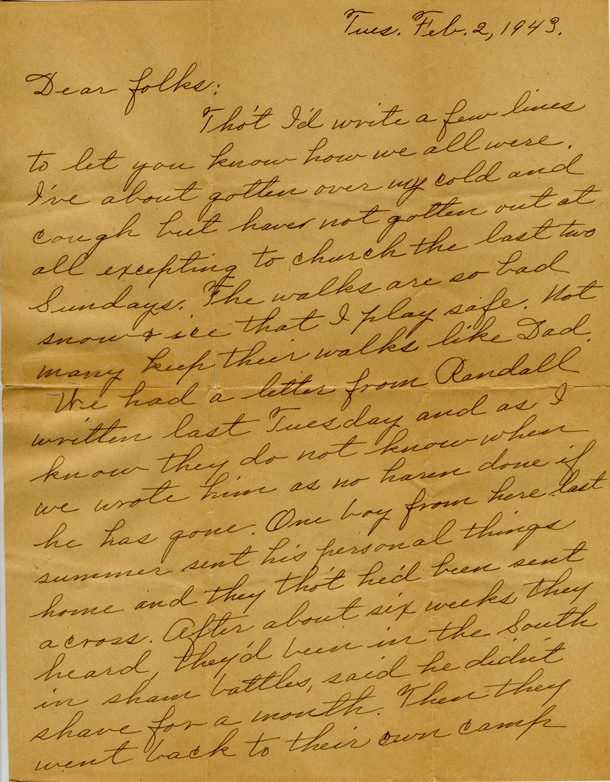 Tues. Feb. 2, 1943.
Dear folks:
Tho't I'd write a few lines
to let you know how we all were.
I've about gotten over my cold and
cough but have not gotten out at
all excepting to church the last two
Sundays. The walks are so bad
snow & ice that I play safe. Not
many keep their walks like Dad.
We had a letter from Randall
written last Tuesday and as I
know they do not know when
we wrote him as no harm done if
he has gone. One boy from here last
summer sent his personal things
home and they tho't he'd been sent
across. After about six weeks they
heard, they'd been in the South
in sham battles, said he didn't
shave for a month. Then they
went back to their own camp